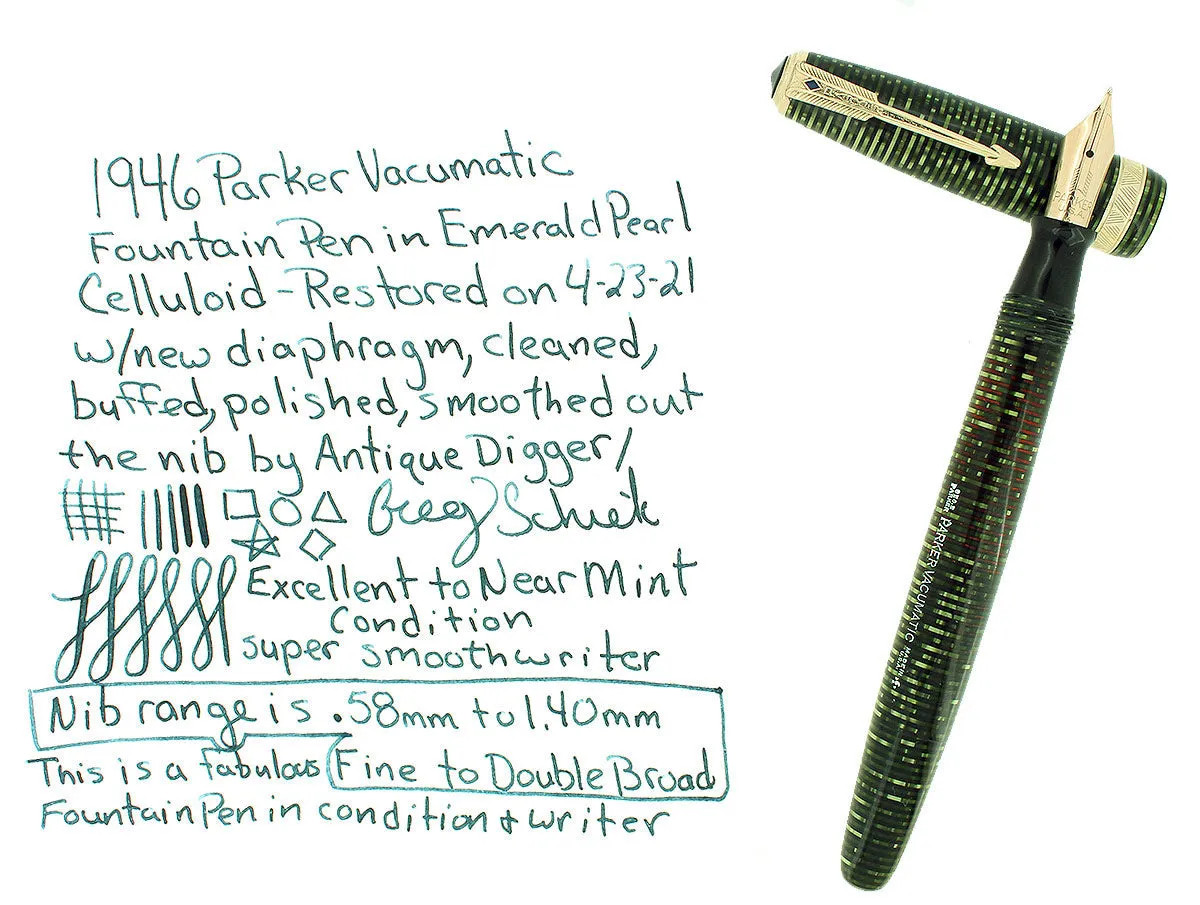 1946 Parker Vacumatic
Fountain Pen in Emerald Pearl
Celluloid - Restored on 4-23-21
w/new diaphragm, cleaned,
buffed, polished, smoothed out
the nib by Antique Digger/
Greg
Excellent to Near Mint
Condition
super smooth writer
Nib range is .58mm to 1.40mm
This is a fabulous Fine to Double Broad
Fountain Pen in condition & writer
PARKER VACUMATIC
MADE IN
U.S.A.